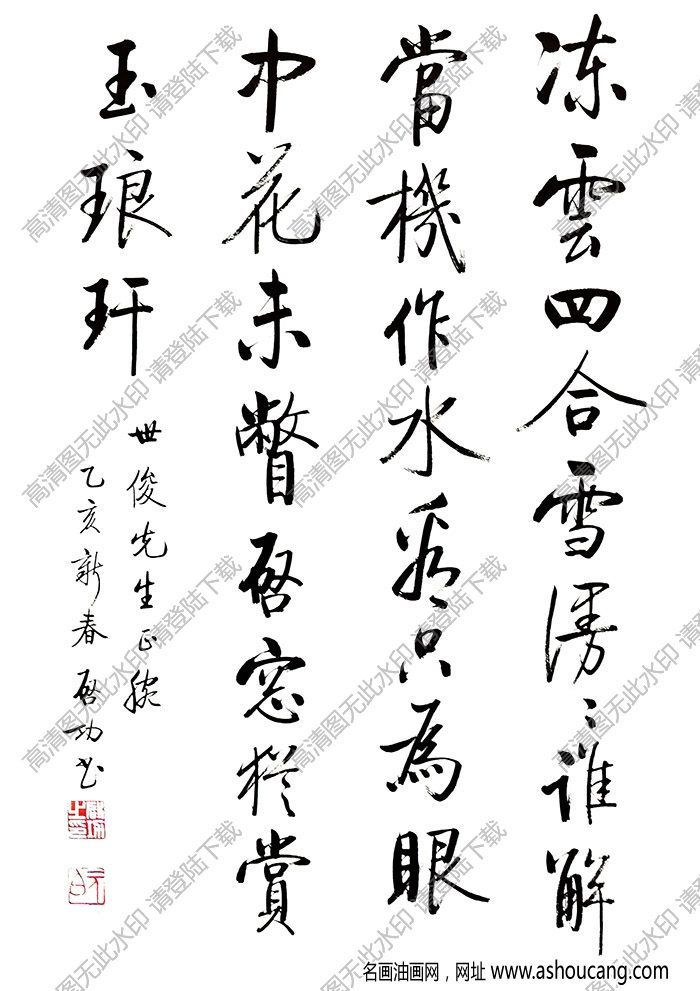 凍雲四合雪漫〻誰解
當機作水看只為眼
中花未瞥啓窓猶賞
玉琅玕
世俊先生正腕
乙亥新春啓功書
高清图无此水印 请登陆下载
名画油画网，网址 www.ashoucang.com